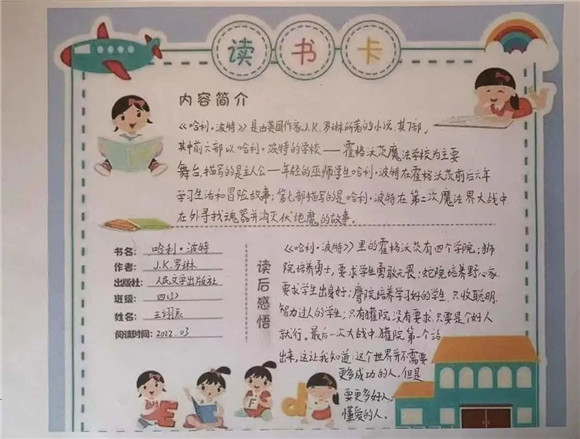 读书卡
内容简介
《哈利·波特》是由英国作家J.K.罗琳所著的小说,其7部,
其中前六部以哈利·波特的学校——霍格沃茨魔法学校为主要
舞台,描写的是主人公—年轻的巫师学生哈利·波特在霍格沃茨前后六年
学习生活和冒险故事;第七部描写的是哈利·波特在第二次魔法界大战中
在外寻找魂器并消灭伏地魔的故事。
书名: 哈利·波特
作者: J.K.罗琳
出版社: 人民文学出版社
班级:
姓名: 王翊辰
阅读时间: 2022.03
读后感悟
《哈利·波特》里的霍格沃茨有四个学院;狮
院培养勇士,要求学生勇敢无畏;蛇院培养野心家,
要求学生出身好;鹰院培养学习好的学生,只收聪明
智力过人的学生;只有獾院没有要求,只要是个好人
就行。最后一次大战中,獾院第一个站
出来,这让我知道:这个世界并不需要
更多成功的人,但是
需要更多好人,
懂爱的人。